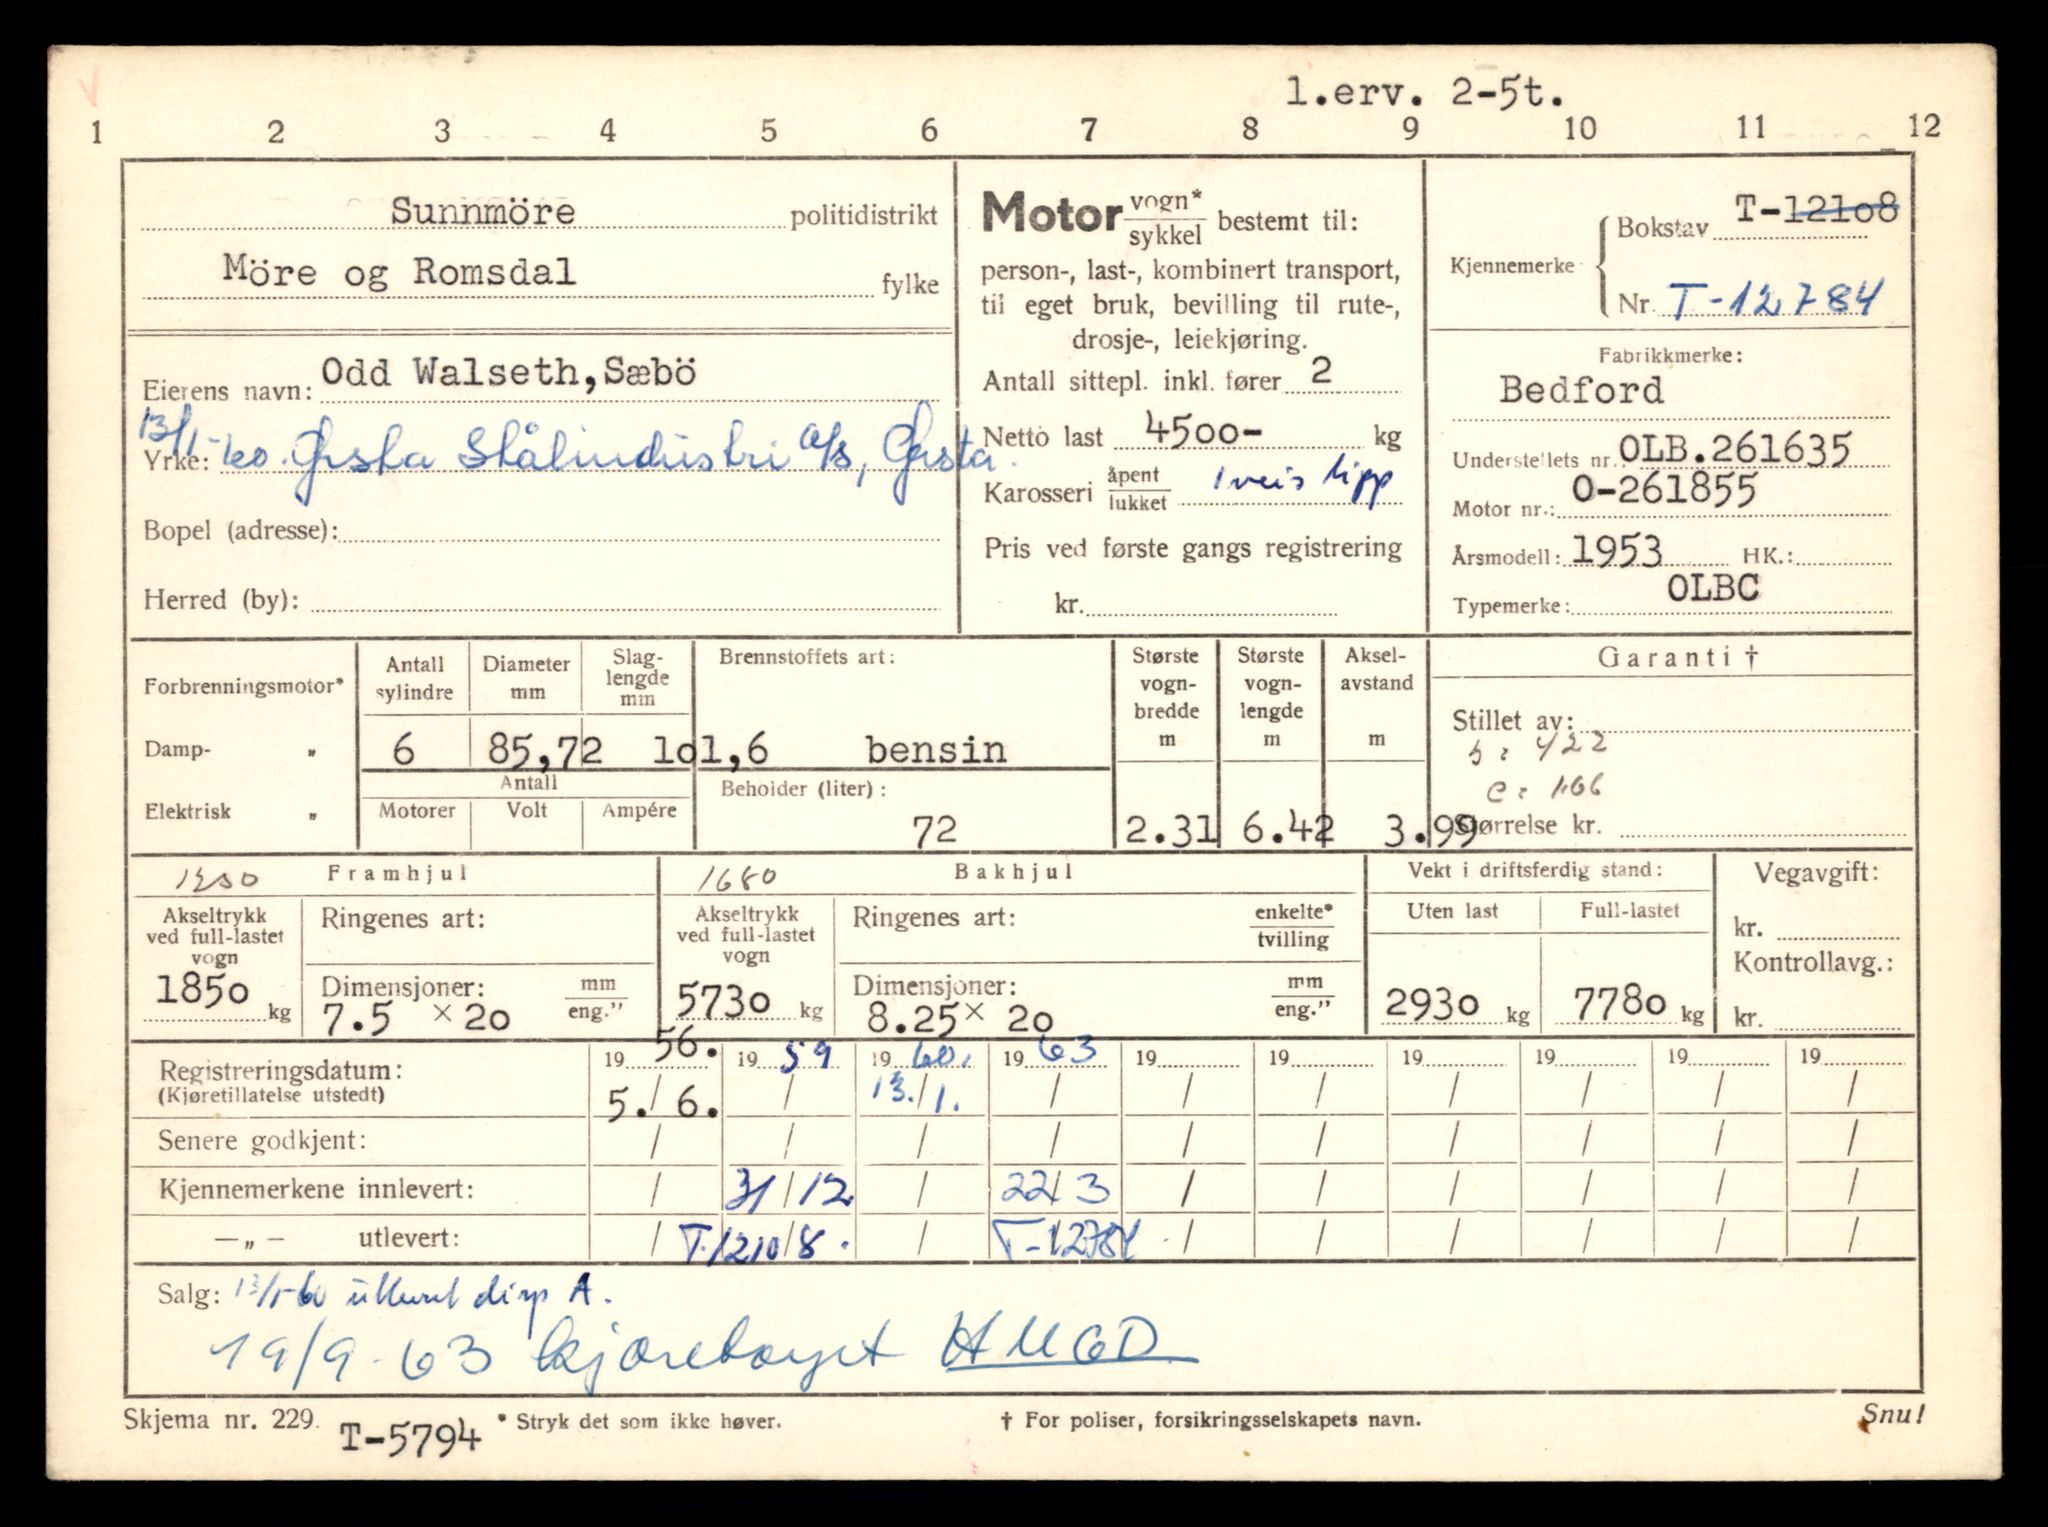 1.erv. 2-5t.
1 2 3 4 5 6 7 8 9 10 11 12
Sunnmöre politidistrikt
Möre og Romsdal fylke
Eierens navn: Odd Walseth, Sæbö
13/1-60. Ørsta Stålindustri a/s, Ørsta.
Yrke:
Bopel (adresse):
Herred (by):
Motor vogn* / sykkel bestemt til:
person-, last-, kombinert transport,
til eget bruk, bevilling til rute-,
drosje-, leiekjøring.
Antall sittepl. inkl. fører 2
Netto last 4500- kg
Karosseri åpent / lukket 1 veis tipp
Pris ved første gangs registrering
kr.
Kjennemerke
Bokstav T-12108
Nr. T-12784
Fabrikkmerke:
Bedford
Understellets nr.: OLB.261635
Motor nr.: O-261855
Årsmodell: 1953 HK.:
Typemerke: OLBC
Forbrenningsmotor*
Damp- „
Elektrisk „
Antall sylindre 6
Diameter mm 85,72
Slag-lengde mm 101,6
Antall
Motorer Volt Ampére
Brennstoffets art:
bensin
Beholder (liter):
72
Største vogn-bredde m 2.31
Største vogn-lengde m 6.42
Aksel-avstand m 3.99
Garanti †
Stillet av:
b: 422
c: 166
Størrelse kr.
1250 Framhjul
Akseltrykk ved full-lastet vogn
1850 kg
Ringenes art:
Dimensjoner: mm / eng."
7.5 × 20
1680 Bakhjul
Akseltrykk ved full-lastet vogn
5730 kg
Ringenes art: enkelte* / tvilling
Dimensjoner: mm / eng."
8.25 × 20
Vekt i driftsferdig stand:
Uten last Full-lastet
2930 kg 7780 kg
Vegavgift:
kr.
Kontrollavg.:
kr.
Registreringsdatum: 19 56. 19 59 19 60. 19 63 19 19 19 19 19 19
(Kjøretillatelse utstedt) 5./6. / 13./1. / / / / / / /
Senere godkjent: / / / / / / / / / /
Kjennemerkene innlevert: / 31/12 / 22/3 / / / / / /
—„— utlevert: / T.12108. / T-12784 / / / / / /
Salg: 13/1-60 utlevert disp A.
19/9-63 kjøretøyet HUGD
Skjema nr. 229. T-5794 * Stryk det som ikke høver. † For poliser, forsikringsselskapets navn. Snu!